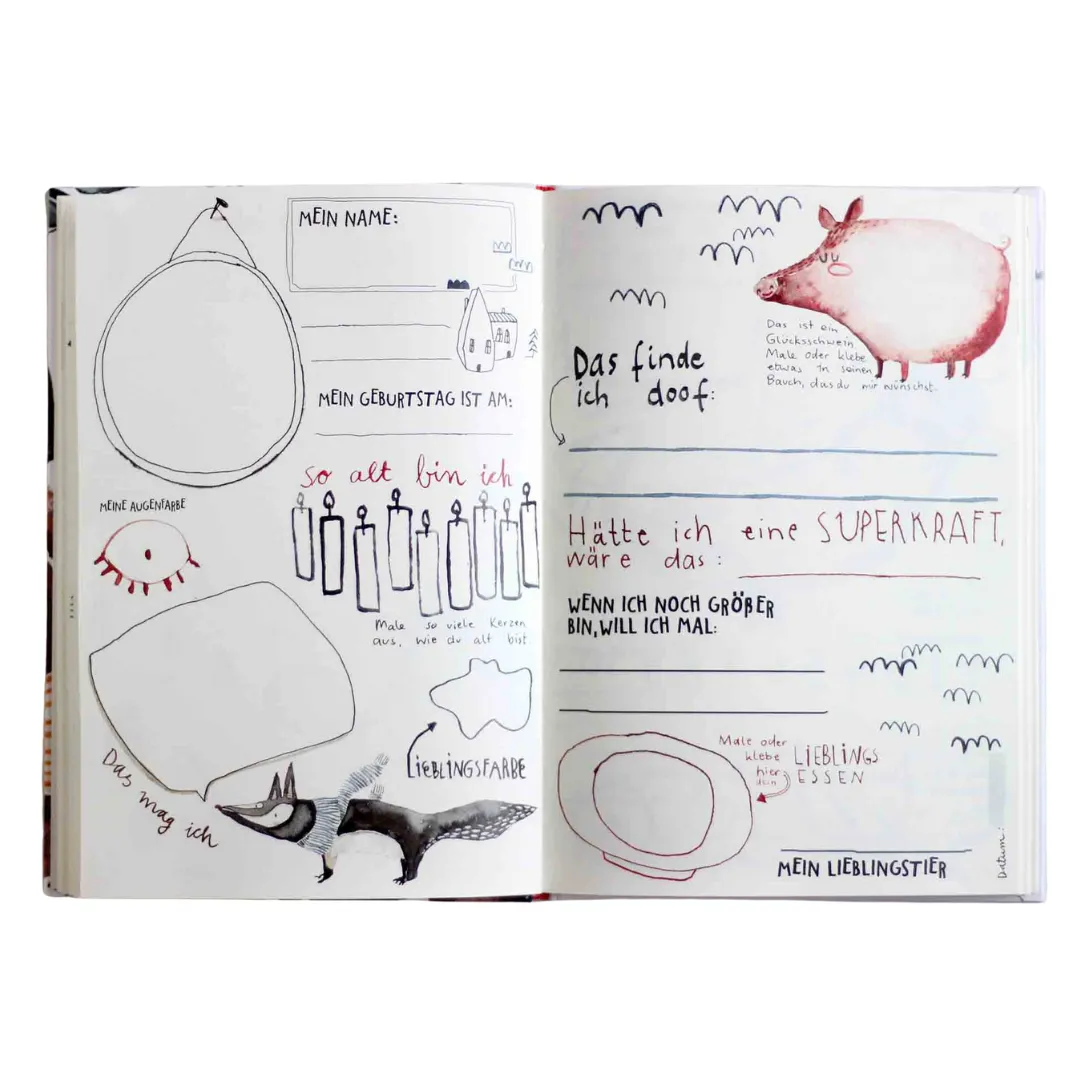 MEIN NAME:
MEIN GEBURTSTAG IST AM:
so alt bin ich
MEINE AUGENFARBE
Male so viele Kerzen
aus, wie du alt bist
LIEBLINGSFARBE
Das mag ich
Das ist ein
Glücksschwein.
Male oder klebe
etwas in seinen
Bauch, das du mir wünschst.
Das finde
ich doof:
Hätte ich eine SUPERKRAFT,
wäre das:
WENN ICH NOCH GRÖßER
BIN, WILL ICH MAL:
Male oder
klebe
hier
dein
LIEBLINGS
ESSEN
MEIN LIEBLINGSTIER
Datum: